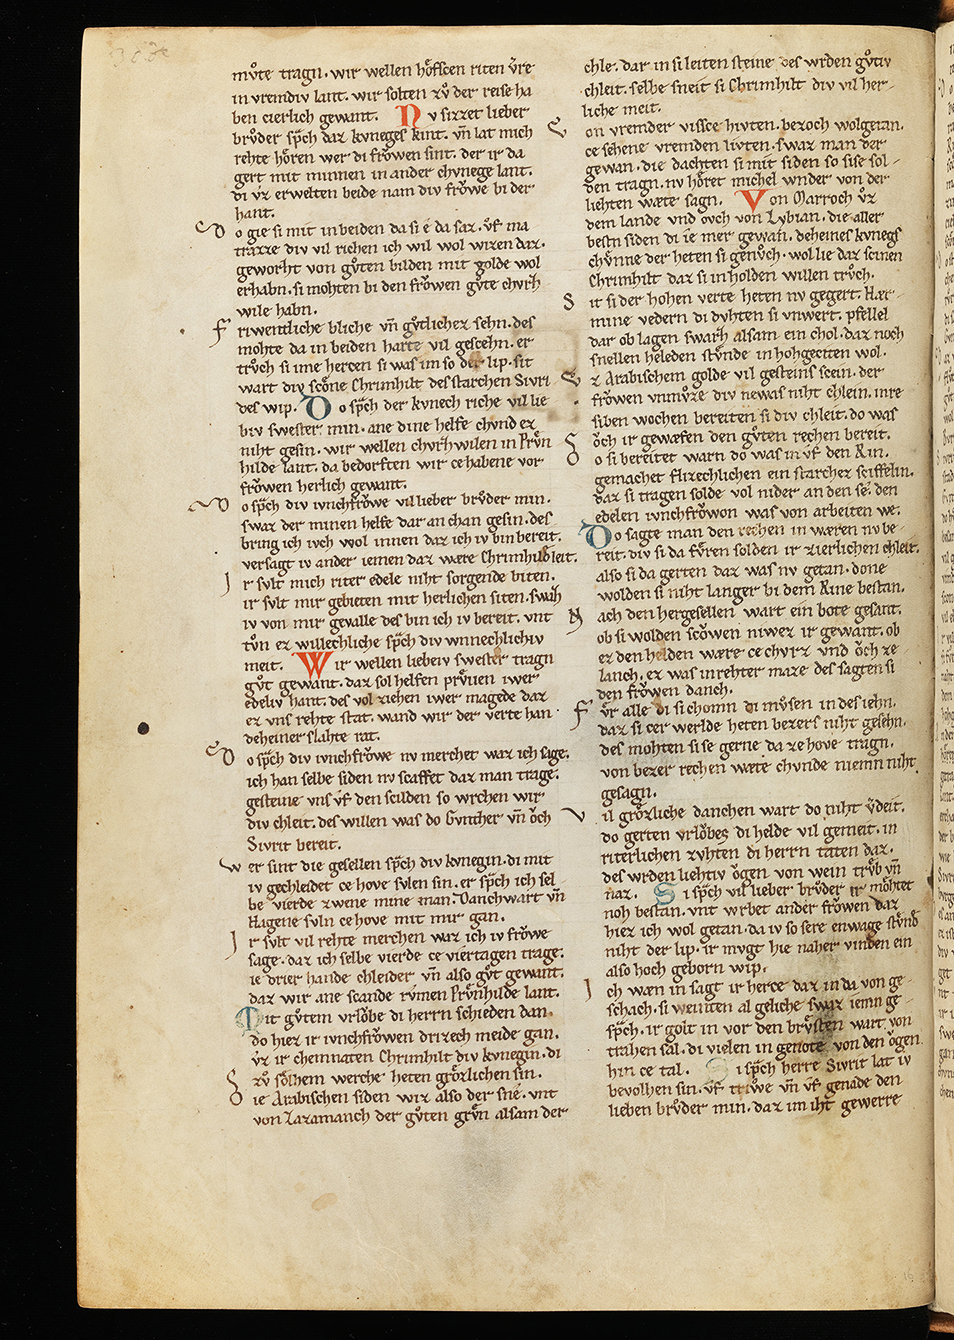 můte tragn. wir wellen hôfscen riten v̂re
in vremdiv lant. wir solten zů der reise ha
ben cierlich gewant. Nv sizzet lieber
brůder sp̄ch daz kvneges kint. vn̄ lat mich
rehte hôren wer di frŏwen sint. der ir da
gert mit minnen in ander chvnege lant.
di vz erwelten beide nam div frŏwe bi der
hant.
Do gie si mit in beiden da si é da saz. v̊f ma
trazze div vil richen ich wil wol wizen daz.
geworht von gůten bilden mit golde wol
erhabn. si mohten bi den frŏwen gůte chvrh
wile habn.
Friventliche bliche vn̄ gůtlichez sehn. des
mohte da in beiden harte vil gescehn. er
trůch si ime hercen si was im so der lip. sit
wart div scône Chrimhilt des starchen Sivri
des wip. Do sp̄ch der kvnech riche vil lie
biv swester min. ane dine helfe chvnd ez
niht gesin. wir wellen chvrhwilen in Prv̂n
hilde lant. da bedorften wir ce habene vor
frŏwen herlich gewant.
Do sp̄ch div ivnchfrŏwe vil lieber brůder min.
swaz der minen helfe dar an chan gesin. des
bring ich ivch wol innen daz ich iv bin bereit.
versagt iv ander iemen daz wære Chrimhilde leit.
Ir svlt mich riter edele niht sorgende biten.
ir svlt mir gebieten mit herlichen siten. swaz
iv von mir gevalle des bin ich iv bereit. vnt
tůn ez willechliche sp̄ch div wnnechlichiv
meit. Wir wellen liebiv swester tragn
gůt gewant. daz sol helfen prv̂ven iwer
edeliv hant. des vol ziehen iwer magede daz
ez vns rehte stat. wand wir der verte han
deheiner slahte rat.
Do sp̄ch div ivnchfrŏwe nv merchet waz ich sage.
ich han selbe siden nv scaffet daz man trage.
gesteine vns v̊f den scilden so wrchen wir
div chleit. des willen was do Gvnther vn̄ ŏch
Sivrit bereit.
Wer sint die gesellen sp̄ch div kvnegin. di mit
iv gechleidet ce hove svlen sin. er sp̄ch ich sel
be vierde zwene mine man. Danchwart vn̄
Hagene svln ce hove mit mir gan.
Ir svlt vil rehte merchen waz ich iv frŏwe
sage. daz ich selbe vierde ce viertagen trage.
ie drier hande chleider vn̄ also gůt gewant.
daz wir ane scande rv̂men Prv̂nhilde lant.
Mit gůtem vrlŏbe di herrn schieden dan.
do hiez ir ivnchfrŏwen drizech meide gan.
v̊z ir chemnaten Chrimhilt div kvnegin. di
zů sôlhem werche heten grôzlichen sin.
Die Arabischen siden wiz also der sné. vnt
von Zazamanch der gůten grv̂n alsam der
chle. dar in si leiten steine des wrden gůtiv
chleit. selbe sneit si Chrimhilt div vil her
liche meit.
Von vremder vissce hivten. bezoch wolgetan.
ce sehene vremden livten. swaz man der
gewan. die dachten si mit siden so sise sol
den tragn. nv hôret michel wnder von der
liehten wæte sagn. Von Marroch v̊z
dem lande vnd ŏvch von Lybian. die aller
bestn siden di ie mer gewan. deheines kvnegs
chv̂nne der heten si genůch. wol lie daz scinen
Chrimhilt daz si in holden willen trůch.
Sit si der hohen verte heten nv gegert. Hær
mine vedern di dvhten si vnwert. pfellel
dar ob lagen swarz alsam ein chol. daz noch
snellen heleden stv̂nde in hohgeciten wol.
Vz Arabischem golde vil gesteins scein. der
frŏwen vnmůze div newas niht chlein. inre
siben wochen bereiten si div chleit. do was
ŏch ir gewæfen den gůten rechen bereit.
Do si bereitet warn do was in v̊f den Rin.
gemachet flizechlichen ein starchez sciffelin.
daz si tragen solde vol nider an den sé. den
edelen ivnchfrŏwon was von arbeiten we.
Do sagte man den rechen in wæren nv be
reit. div si da fv̂ren solden ir zierlichen chleit.
also si da gerten daz was nv getan. done
wolden si niht langer bi dem Rine bestan.
Nach den hergesellen wart ein bote gesant.
ob si wolden scŏwen niwez ir gewant. ob
ez den helden wære ce chvrz vnd ŏch ze
lanch. ez was in rehter maze des sagten si
den frŏwen danch.
Fv̂r alle di si chomn di mv̂sen in des iehn.
daz si cer werlde heten bezers niht gesehn.
des mohten si se gerne da ze hove tragn.
von bezer rechen wæte chvnde niemn niht
gesagn.
Vil grôzliche danchen wart do niht v̂deit.
do gerten vrlŏbes di helde vil gemeit. in
riterlichen zvhten di herrn taten daz.
des wrden liehtiv ŏgen von wein trv̂b vn̄
naz. Si sp̄ch vil lieber brůder ir môhtet
noh bestan. vnt wrbet ander frŏwen daz
hiez ich wol getan. da iv so sere enwage stv̂nd
niht der lip. ir mvgt hie naher vinden ein
also hoch geborn wip.
Ich wæn in sagt ir herce daz in da von ge
schach. si weinten al geliche swaz iemn ge
sp̄ch. ir golt in vor den brv̂sten wart von
trahen sal. di vielen in genote von den ŏgen
hin ce tal. Si sp̄ch herre Sivrit lat iv
bevolhen sin. v̊f triwe vn̄ v̊f genade den
lieben brůder min. daz im iht gewerre